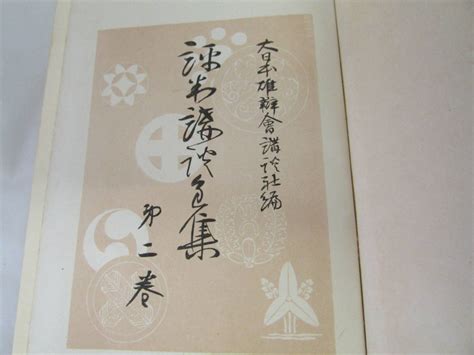 大日本雄辯會講談社編
評判講談全集
第二巻